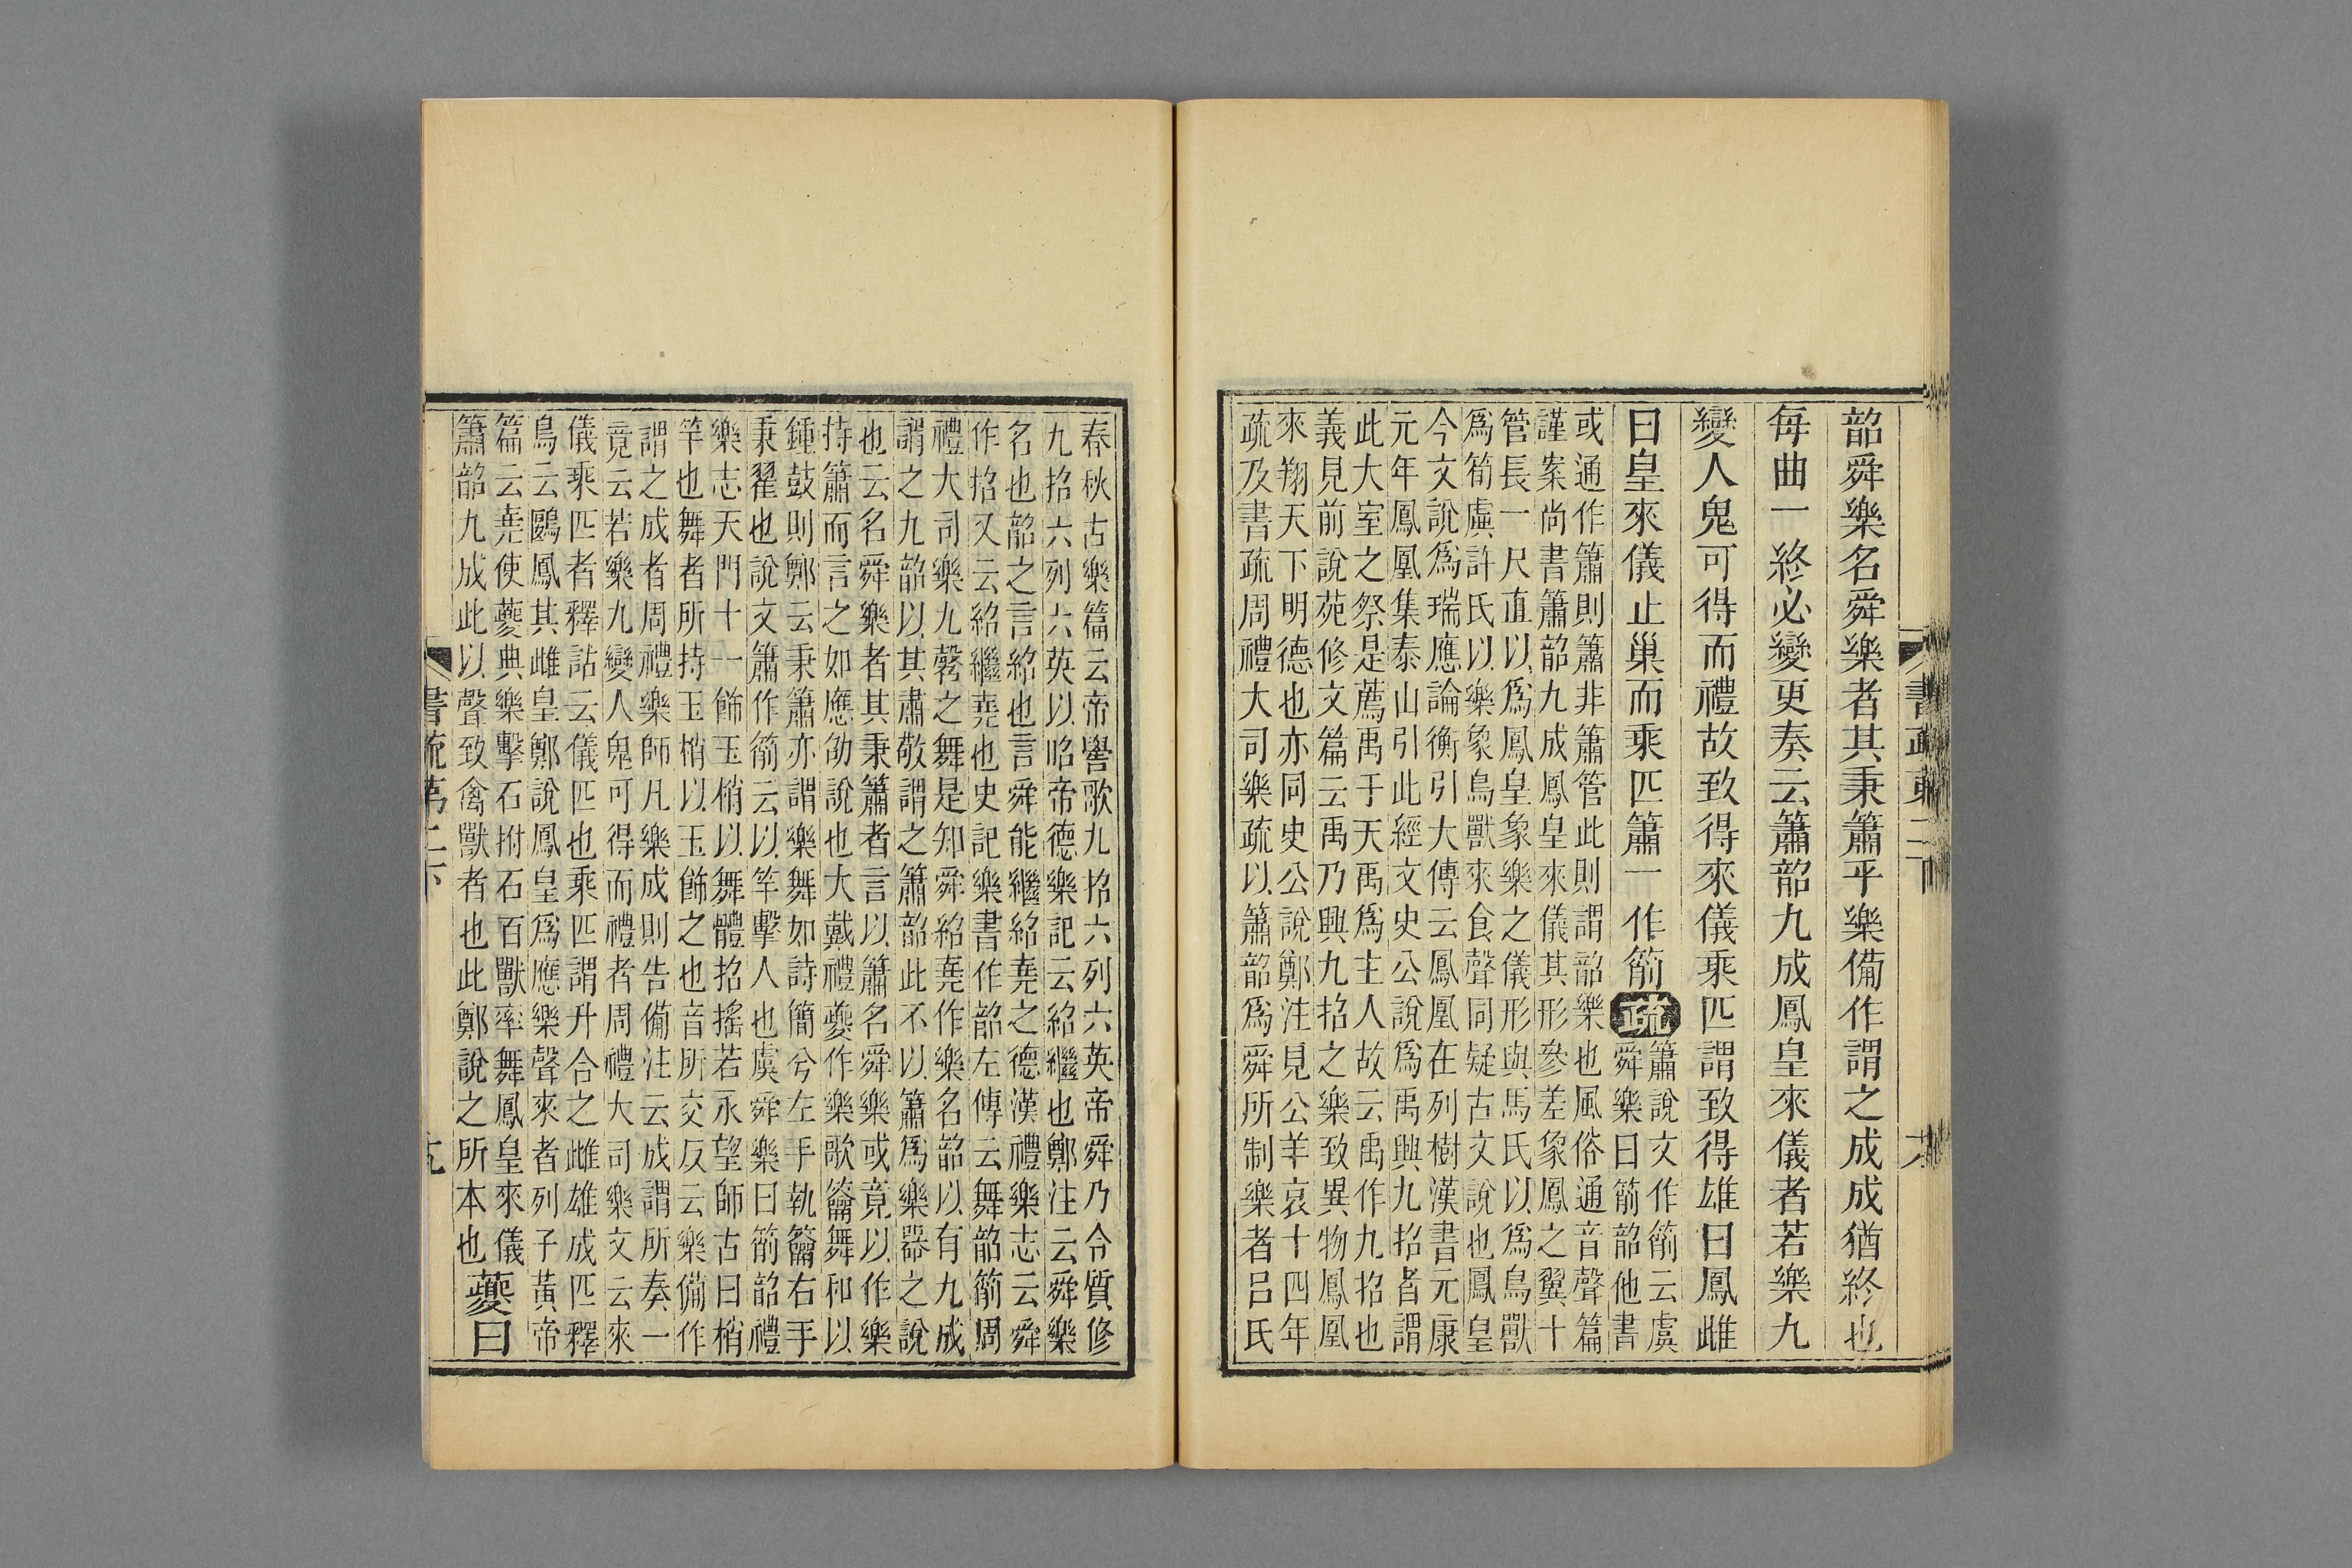 韶舜樂名舜樂者其秉簫乎樂備作謂之成成猶終也
每曲一終必變更奏云簫韶九成鳳皇來儀者若樂九
變人鬼可得而禮故致得來儀乘匹謂致得雄曰鳳雌
曰皇來儀止巢而乘匹簫一作箾疏
簫說文作箾云虞
舜樂曰箾韶他書
或通作簫則簫非簫管此則謂韶樂也風俗通音聲篇
謹案尚書簫韶九成鳳皇來儀其形參差象鳳之翼十
管長一尺直以爲鳳皇象樂之儀形與馬氏以爲鳥獸
爲筍虡許氏以樂象鳥獸來食聲同疑古文說也鳳皇
今文說爲瑞應論衡引大傳云鳳凰在列樹漢書元康
元年鳳凰集泰山引此經文史公說爲禹興九招者謂
此大室之祭是薦禹于天禹爲主人故云禹作九招也
義見前說苑修文篇云禹乃興九招之樂致異物鳳凰
來翔天下明德也亦同史公說鄭注見公羊哀十四年
疏及書疏周禮大司樂疏以簫韶爲舜所制樂者呂氏
書疏
春秋古樂篇云帝嚳歌九招六列六英帝舜乃令質修
九招六列六英以昭帝德樂記云紹繼也鄭注云舜樂
名也韶之言紹也言舜能繼紹堯之德漢禮樂志云舜
作招又云紹繼堯也史記樂書作韶左傳云舞韶箾周
禮大司樂九㲈之舞是知舜紹堯作樂名韶以有九成
謂之九韶以其肅敬謂之簫韶此不以簫爲樂器之說
也云名舜樂者其秉簫者言以簫名舜樂或竟以作樂
持簫而言之如應劭說也大戴禮夔作樂歌籥舞和以
鍾鼓則鄭云秉簫亦謂樂舞如詩簡兮左手執籥右手
秉翟也說文簫作箾云以竿擊人也虞舜樂曰箾韶禮
樂志天門十一飾玉梢以舞體招搖若永望師古曰梢
竿也舞者所持玉梢以玉飾之也音所交反云樂備作
謂之成者周禮樂師凡樂成則告備注云成謂所奏一
竟云若樂九變人鬼可得而禮者周禮大司樂文云來
儀乘匹者釋詁云儀匹也乘匹謂升合之雌雄成匹釋
鳥云鶠鳳其雌皇鄭說鳳皇爲應樂聲來者列子黃帝
篇云堯使夔典樂擊石拊石百獸率舞鳳皇來儀
簫韶九成此以聲致禽獸者也此鄭說之所本也夔曰
書疏第二下